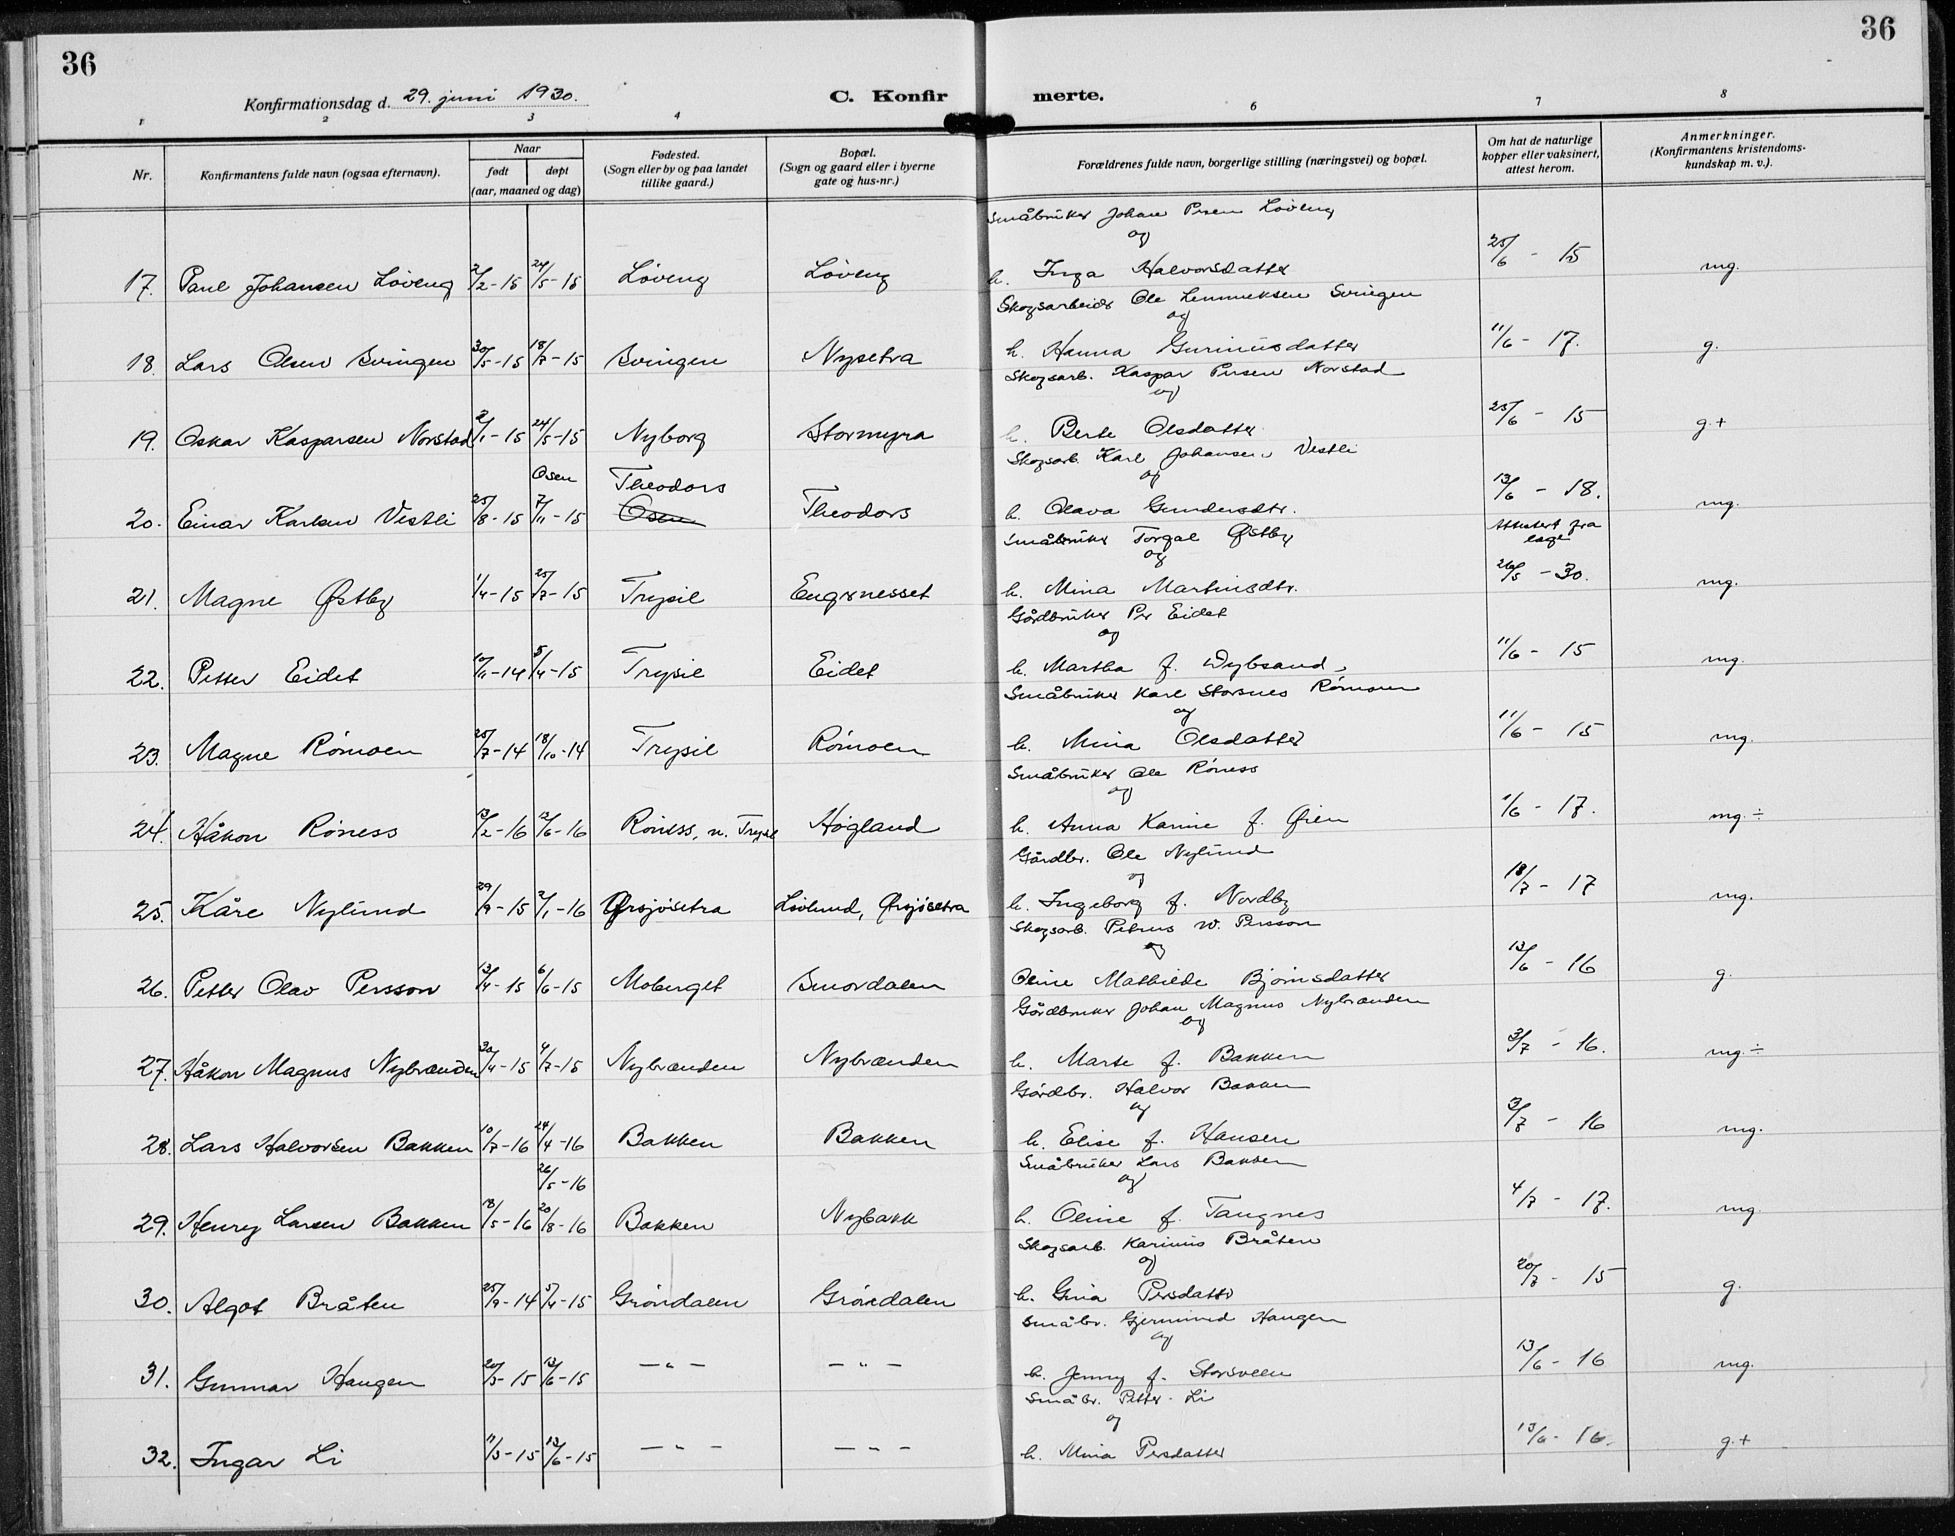 36
36
Konfirmationsdag d. 29. juni 1930.
C. Konfirmerte.
1 2 3 4 6 7 8
Nr.
Konfirmantens fulde navn (ogsaa efternavn).
Naar
født
døpt
(aar, maaned og dag)
Fødested.
(Sogn eller by og paa landet
tillike gaard.)
Bopæl.
(Sogn og gaard eller i byerne
gate og hus-nr.)
Forældrenes fulde navn, borgerlige stilling (næringsvei) og bopæl.
Om hat de naturlige
kopper eller vaksinert,
attest herom.
Anmerkninger.
(Konfirmantens kristendoms-
kundskap m. v.).
Småbruker Johan Persen Løveng
og
17. Paul Johansen Løveng 2/2-15 24/5-15 Løveng Løveng h. Inga Halvorsdatter 25/6 - 15 mg.
Skogsarbeider Ole Lemmeksen Svingen
og
18. Lars Olsen Svingen 30/5-15 18/7-15 Svingen Nysetra h. Hanna Gurinusdatter 11/6 - 17. g.
Skogsarb. Kaspar Persen Norstad
og
19. Oskar Kaspersen Norstad 2/1-15 24/5-15 Nyborg Stormyra h. Berte Olsdatter 25/6 - 15 g+
Skogsarb. Karl Johansen Vestli
og
Osen Theodors
20. Einar Karlsen Vestli 25/8-15 7/11-15 Osen Theodors h. Olava Gundersdtr. 13/6 - 18. mg.
Småbruker Torgal Østby
og
Attestert fra
læge
21. Magne Østby 1/4-15 25/7-15 Trysil Engernesset h. Mina Martinsdtr. 26/5 - 30. mg.
Gårdbruker Per Eidet
og
22. Petter Eidet 10/11-14 5/4-15 Trysil Eidet h. Martha f. Dybsand 11/6 - 15 mg.
Småbruker Karl Storsnes Rømoen
og
23. Magne Rømoen 25/7-14 18/10-14 Trysil Rømoen h. Mina Olsdatter 11/6 - 15 mg.
Småbruker Ole Røness
og
24. Håkon Røness 13/2-16 12/6-16 Røness, n. Trysil Høgland h. Anna Karine f. Øien 1/6 - 17. mg.÷
Gårdbr. Ole Nylund
og
25. Kåre Nylund 29/9-15 2/1-16 Ørsjøsetra Liölund, Ørsjøsetra h. Ingeborg f. Nordby 18/7 - 17 mg.
Skogsarb. Petrus W. Persson
og
26. Petter Olav Persson 13/4-15 6/6-15 Moberget Smordalen Oline Mathilde Bjørnsdatter 13/6 - 16 g.
Gårdbruker Johan Magnus Nybrænden
og
27. Håkon Magnus Nybrænden 30/4-15 4/7-15 Nybrænden Nybrænden h. Marte f. Bakken 3/7 - 16. mg.÷
Gårdbr. Halvor Bakken
og
28. Lars Halvorsen Bakken 10/7-16 24/4-16 Bakken Bakken h. Elise f. Hansen 3/7 - 16 mg.
Småbruker Lars Bakken
og
26/5-16
29. Henry Larsen Bakken 18/5-16 20/8-16 Bakken Nybakk h. Oline f. Tangnes 4/7 - 17. mg
Skogsarb. Karinus Bråten
og
30. Algot Bråten 25/9-14 5/4-15 Grøndalen Grøndalen h. Gina Persdatter 20/7 - 15 g.
Småbr. Gjermund Haugen
og
31. Gunnar Haugen 20/3-15 13/6-15 — " — — " — h. Jenny f. Storsveen 13/6 - 16 mg.
Småbr. Petter Li
og
32. Ingar Li 11/3-15 13/6-15 — " — — " — h. Mina Persdatter 13/6 - 16. g.+